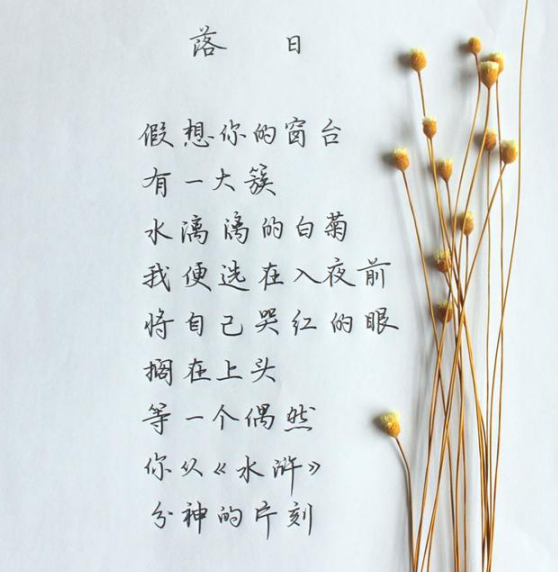 落日
假想你的窗台
有一大簇
水漓漓的白菊
我便选在入夜前
将自己哭红的眼
搁在上头
等一个偶然
你从《水浒》
分神的片刻